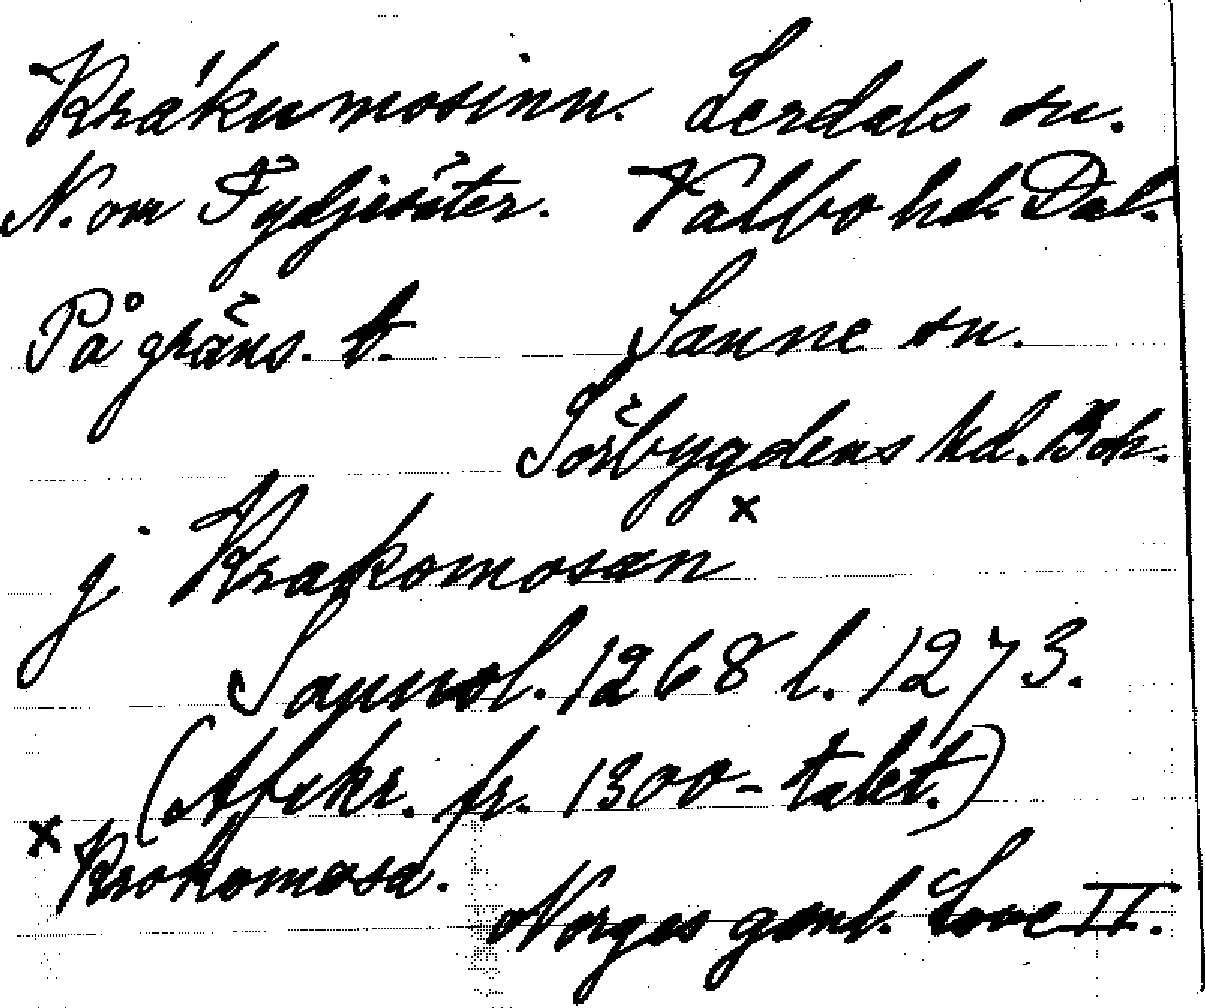 Krákumosinn. Lerdals sn.
N. om Fydjesäter. Valbo hd. Dal.
På gräns. t. Sanne sn.
Sörbygdens hd. Boh.
j Krakomosan x
1268 l. 1273.
(Afskr. fr. 1300-talet.)
x Krokomosa.
Norges gaml. Love II.